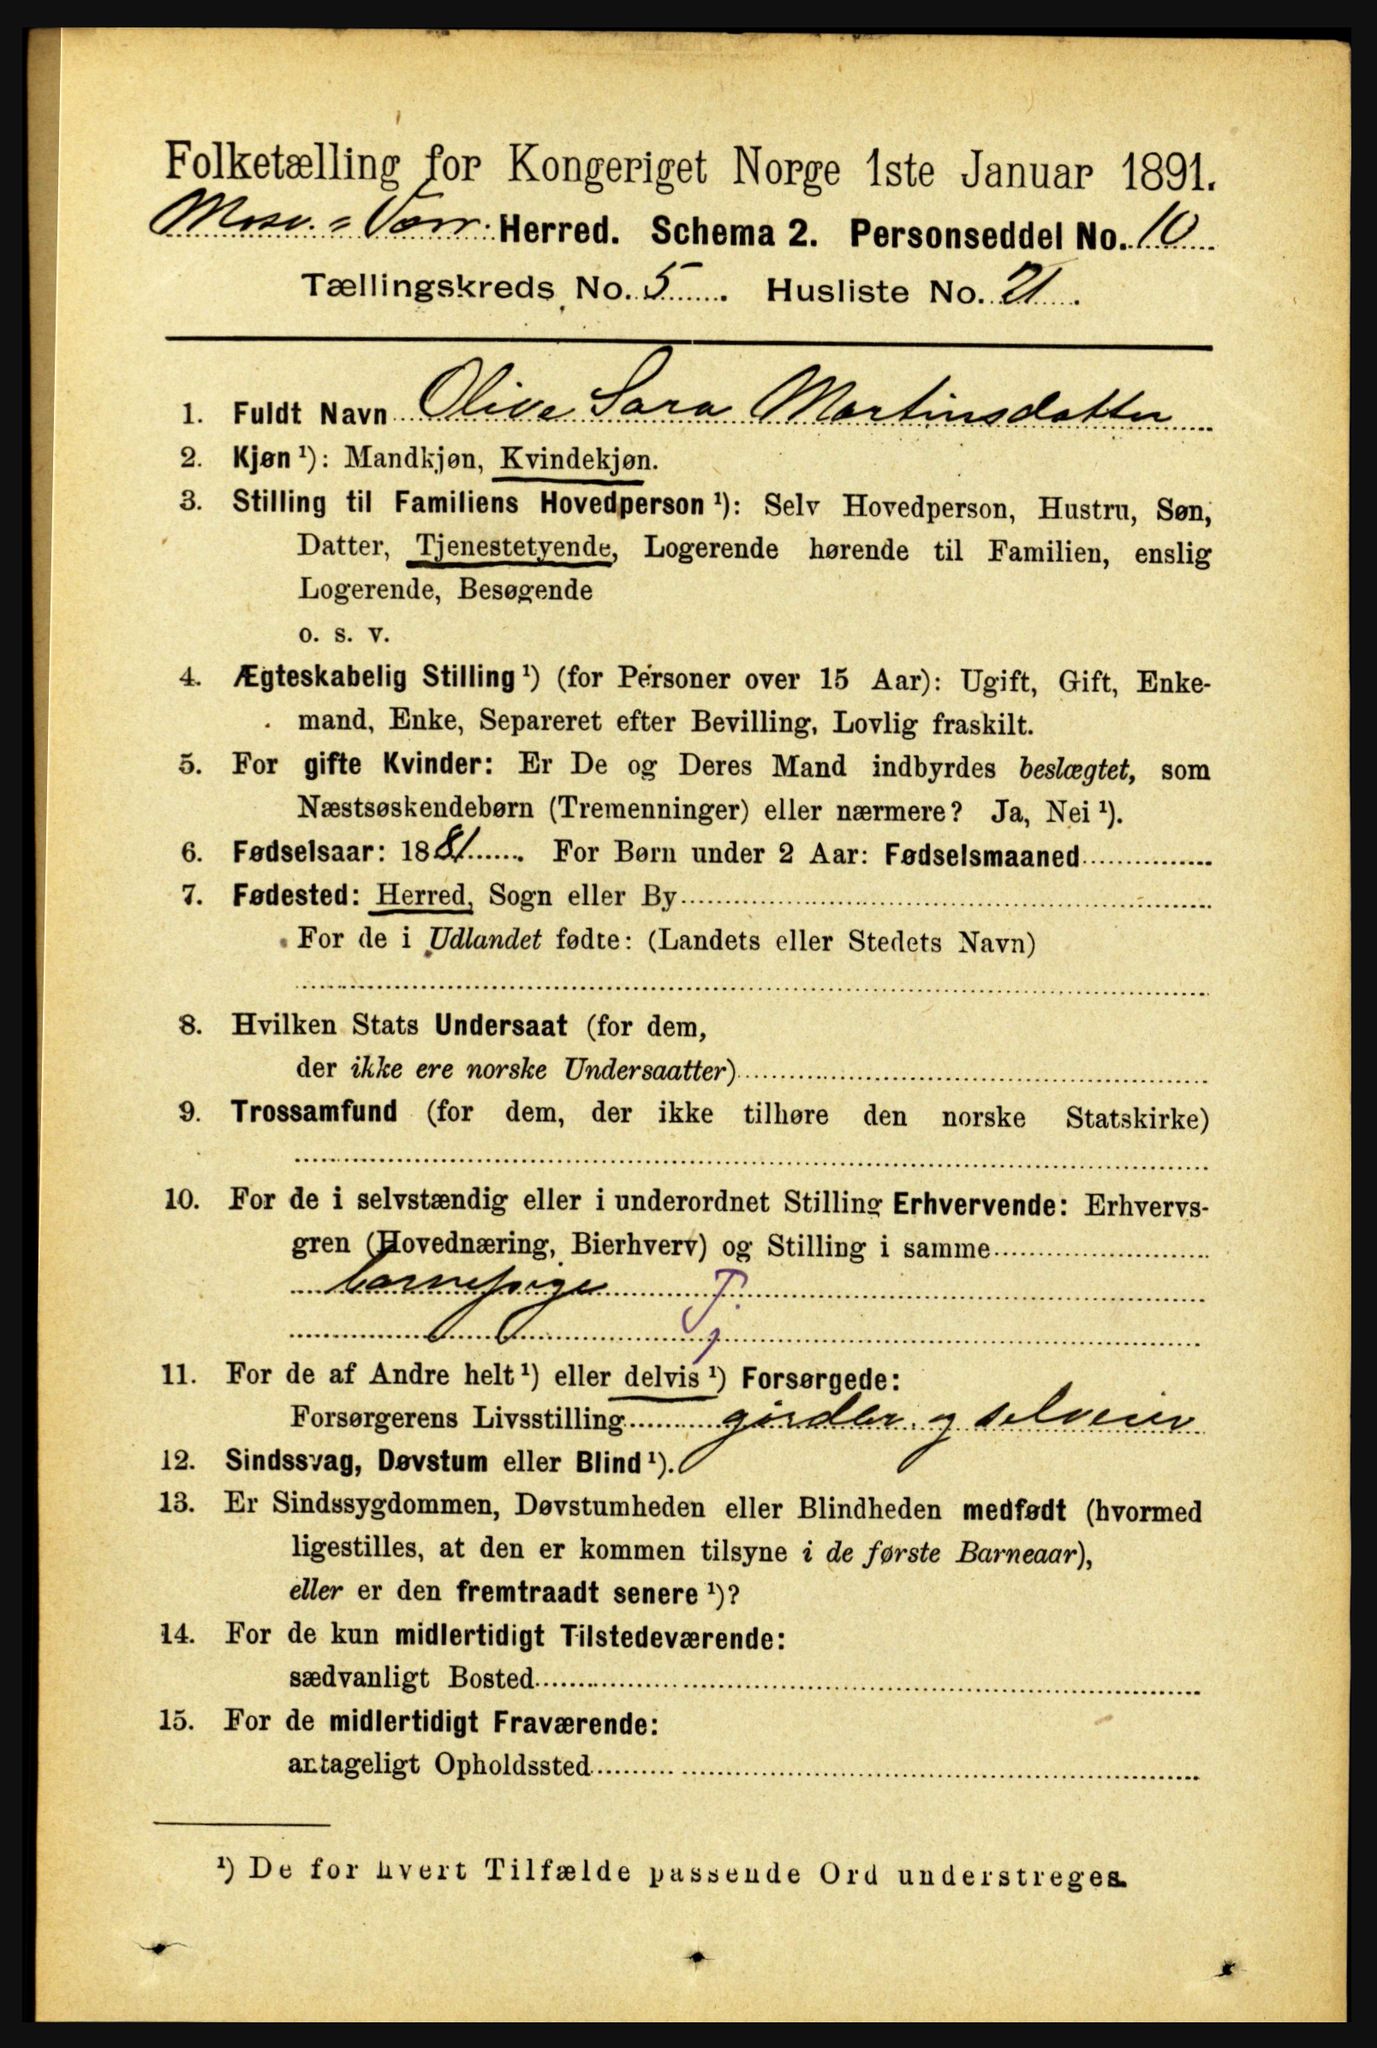 Folketælling for Kongeriget Norge 1ste Januar 1891.
Mosv. & Varr. Herred. Schema 2. Personseddel No. 10
Tællingskreds No. 5. Husliste No. 21.
1. Fuldt Navn Olive Sara Martinsdatter
2. Kjøn ¹): Mandkjøn, Kvindekjøn.
3. Stilling til Familiens Hovedperson ¹): Selv Hovedperson, Hustru, Søn,
Datter, Tjenestetyende, Logerende hørende til Familien, enslig
Logerende, Besøgende
o. s. v.
4. Ægteskabelig Stilling ¹) (for Personer over 15 Aar): Ugift, Gift, Enke-
mand, Enke, Separeret efter Bevilling, Lovlig fraskilt.
5. For gifte Kvinder: Er De og Deres Mand indbyrdes beslægtet, som
Næstsøskendebørn (Tremenninger) eller nærmere? Ja, Nei ¹).
6. Fødselsaar: 1881. For Børn under 2 Aar: Fødselsmaaned
7. Fødested: Herred, Sogn eller By
For de i Udlandet fødte: (Landets eller Stedets Navn)
8. Hvilken Stats Undersaat (for dem,
der ikke ere norske Undersaatter)
9. Trossamfund (for dem, der ikke tilhøre den norske Statskirke)
10. For de i selvstændig eller i underordnet Stilling Erhvervende: Erhvervs-
gren (Hovednæring, Bierhverv) og Stilling i samme
barnepige Tj
11. For de af Andre helt ¹) eller delvis ¹) Forsørgede:
Forsørgerens Livsstilling gårdbr. og selveier
12. Sindssvag, Døvstum eller Blind ¹).
13. Er Sindssygdommen, Døvstumheden eller Blindheden medfødt (hvormed
ligestilles, at den er kommen tilsyne i de første Barneaar),
eller er den fremtraadt senere ¹)?
14. For de kun midlertidigt Tilstedeværende:
sædvanligt Bosted
15. For de midlertidigt Fraværende:
antageligt Opholdssted
¹) De for hvert Tilfælde passende Ord understreges.